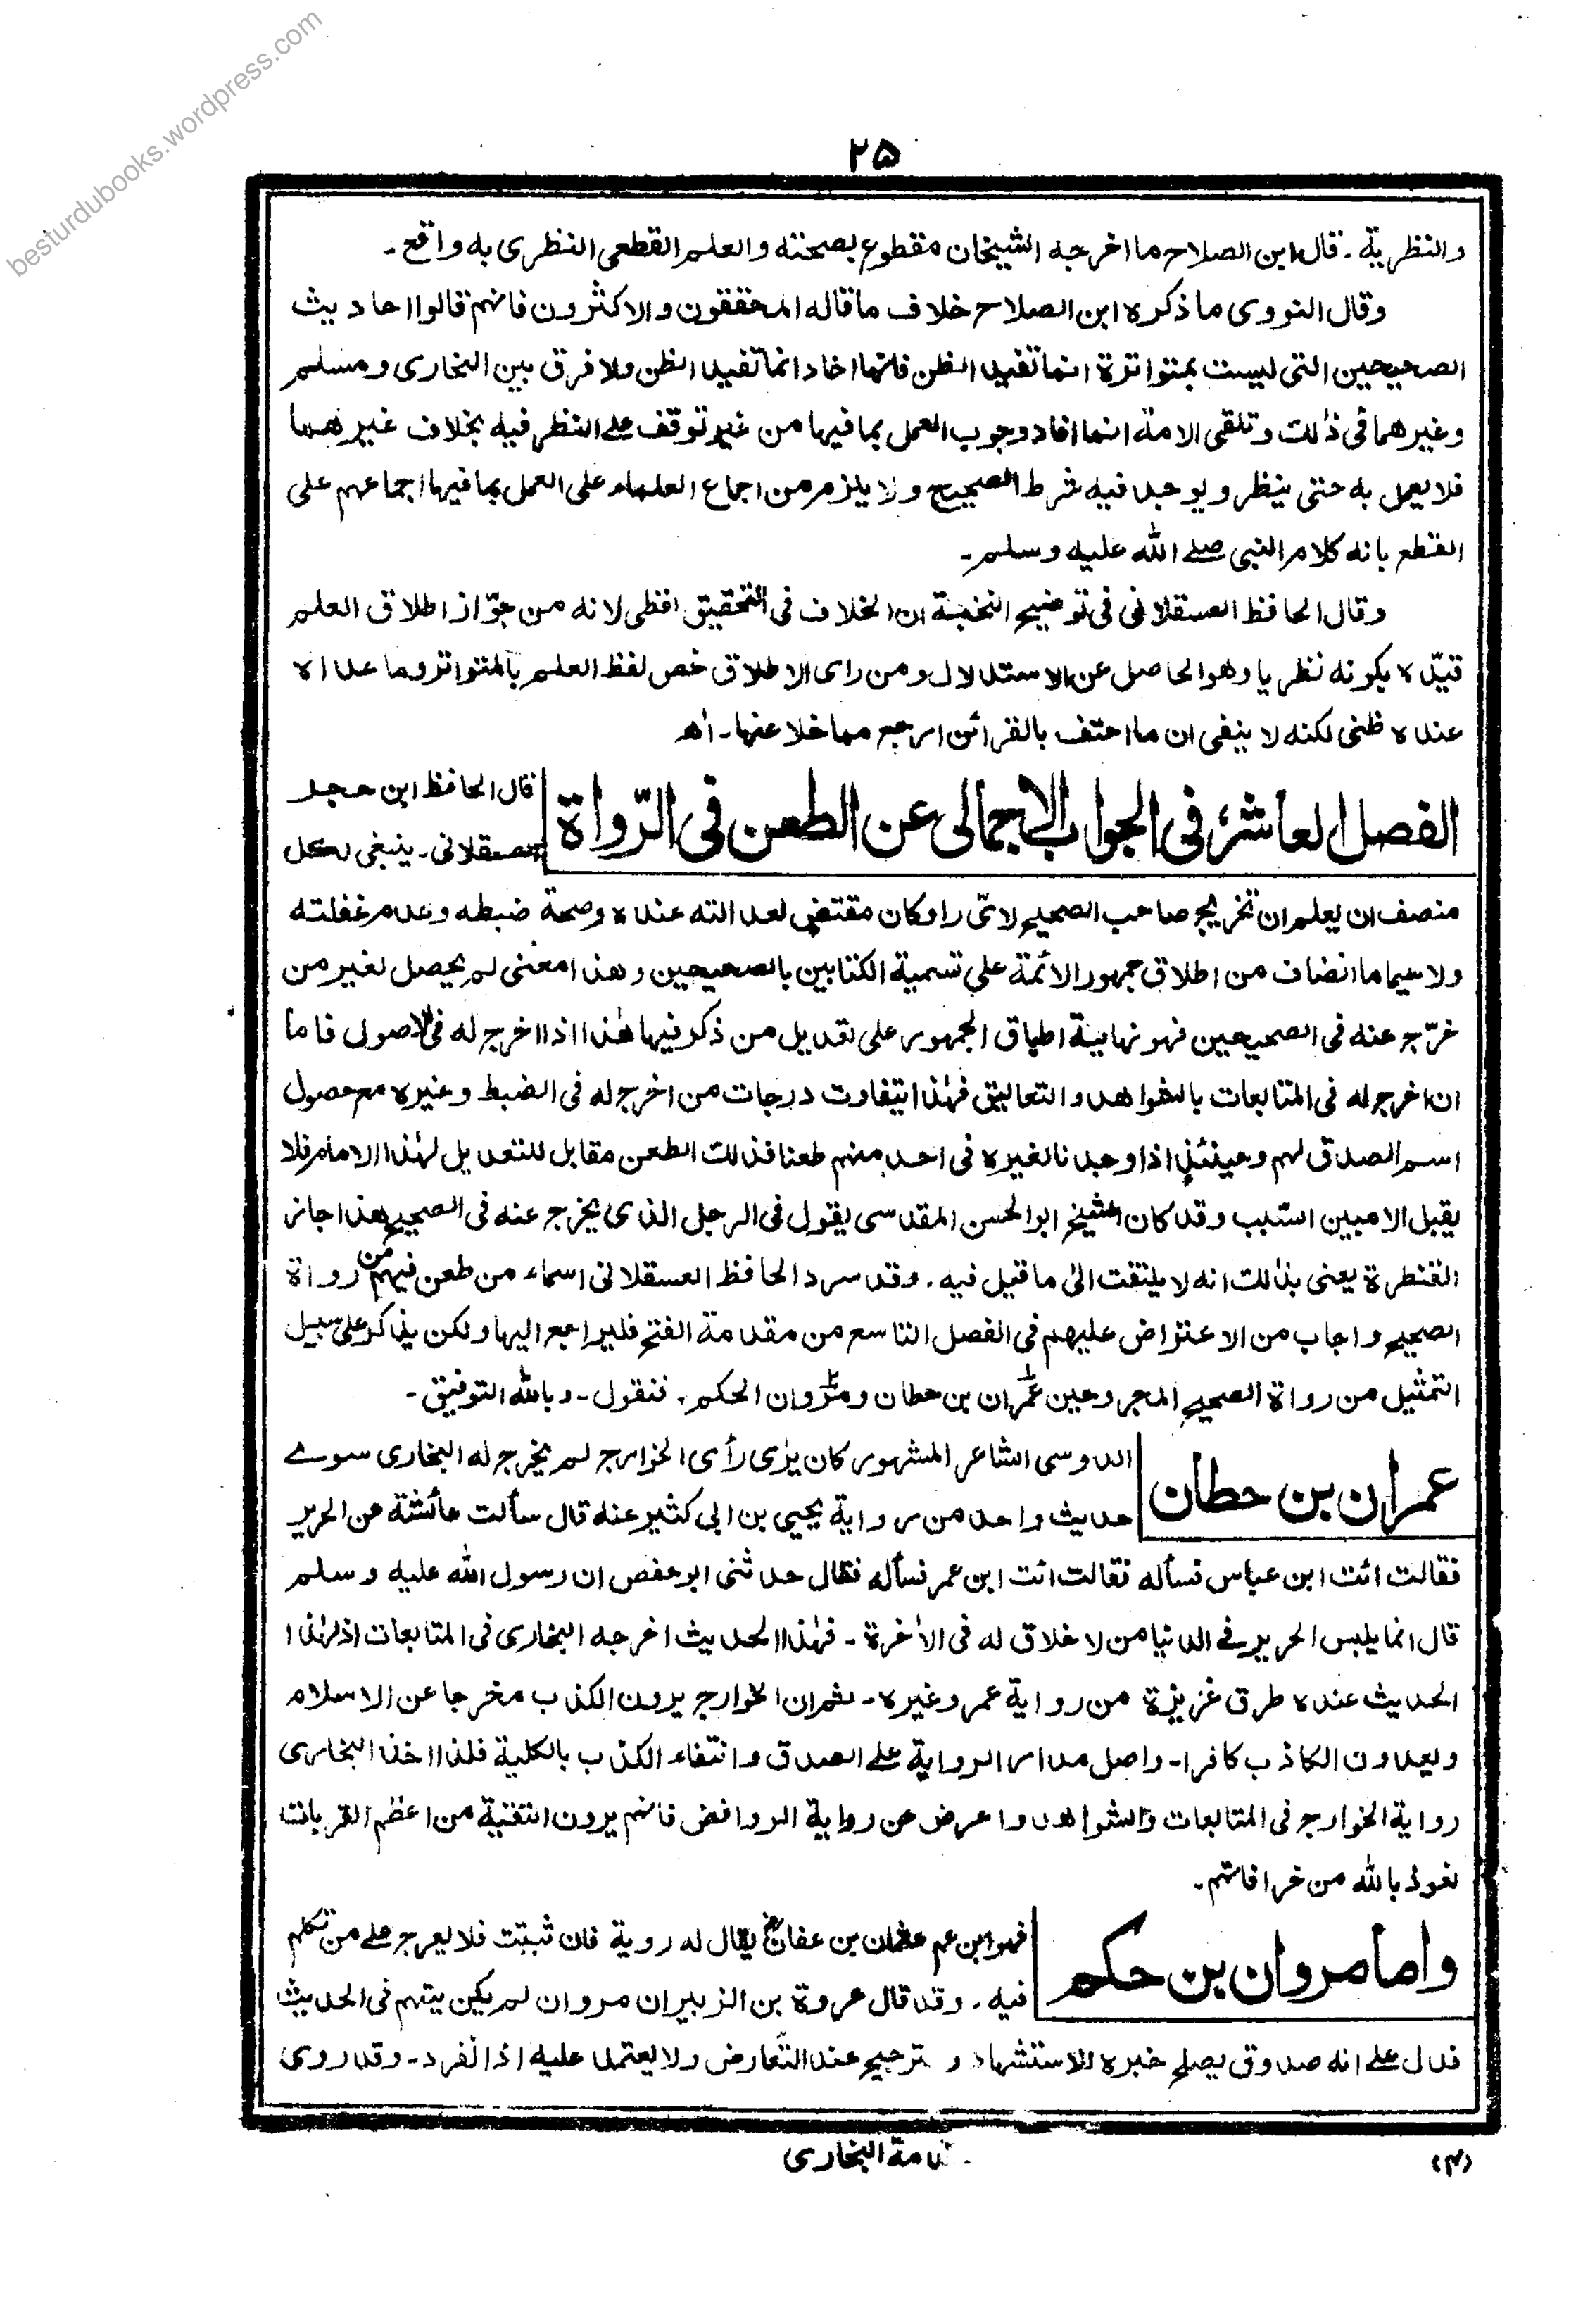 besturdubooks.wordpress.com
۲۵
والنظرية۔ قال ابن الصلاح ما اخرجه الشيخان مقطوع بصحته والعلم القطعي النظري به واقع۔
وقال النووي ما ذكره ابن الصلاح خلاف ما قاله المحققون والاكثرون فانهم قالوا احاديث
الصحيحين التي ليست بمتواترة انما تفيد الظن فانها احاد انما تفيد الظن ولا فرق بين البخاري ومسلم
وغيرهما في ذلك وتلقى الامة انما افاد وجوب العمل بما فيها من غير توقف على النظر فيه بخلاف غيرهما
فلا يعمل به حتى ينظر ويوجد فيه شرط الصحيح ولا يلزم من اجماع العلماء على العمل بما فيها اجماعهم على
القطع بانه كلام النبي صلے الله عليه وسلم۔
وقال الحافظ العسقلاني في توضيح النخبة ان الخلاف في التحقيق لفظي لانه من جوّز اطلاق العلم
قيّده بكونه نظريا وهو الحاصل عن الاستدلال ومن راى الاطلاق خص لفظ العلم بالمتواتر وما عداه
عنده ظني لكنه لا ينفي ان ما احتف بالقرائن ارجع مما خلا عنها۔ اه
الفصل العاشر في الجواب الاجمالي عن الطعن في الرّواة
قال الحافظ ابن حجر
العسقلاني۔ ينبغي لكل
منصف ان يعلم ان تخريج صاحب الصحيح لاىّ راو كان مقتض لعدالته عنده وصحة ضبطه وعدم غفلته
ولا سيما ما انضاف من اطلاق جمهور الأئمة علي تسمية الكتابين بالصحيحين وهذا معنى لم يحصل لغير من
خرّج عنه في الصحيحين فهو نهاية اطباق الجمهور على تعديل من ذكر فيها هذا اذا اخرج له في الاصول فاما
ان اخرج له في المتابعات بالشواهد والتعاليق فهذا يتفاوت درجات من اخرج له في الضبط وغيره مع حصول
اسم الصدق لهم وحينئذ اذا وجدنا لغيره في احد منهم طعنا فذلك الطعن مقابل للتعديل لهذا الامام فلا
يقبل الا مبين السبب وقد كان الشيخ ابو الحسن المقدسي يقول في الرجل الذي يخرج عنه في الصحيح هذا جاز
القنطرة يعني بذلك انه لا يلتفت الى ما قيل فيه۔ وقد سرد الحافظ العسقلاني اسماء من طعن فيهم من رواة
الصحيح واجاب من الاعتراض عليهم في الفصل التاسع من مقدمة الفتح فليراجع اليها ولكن يذكر على سبيل
التمثيل من رواة الصحيح المجروحين عمران بن حطان ومروان الحكم۔ فنقول۔ وبالله التوفيق۔
عمران بن حطان
الدوسي الشاعر المشهور كان يرى رأى الخوارج لم يخرج له البخاري سوے
حديث واحد من رواية يحيى بن ابي كثير عنه قال سألت عائشة عن الحرير
فقالت ائت ابن عباس فسأله فقالت ائت ابن عمر فسأله فقال حدثني ابو حفص ان رسول الله عليه وسلم
قال انما يلبس الحرير في الدنيا من لا خلاق له في الأخرة۔ فهذا الحديث اخرجه البخاري في المتابعات اذ لهذا
الحديث عنده طرق غزيزة من رواية عمر وغيره۔ ثم ان الخوارج يرون الكذب مخرجا عن الاسلام
ويعدون الكاذب كافرا۔ واصل مدار الرواية علے الصدق وانتفاء الكذب بالكلية فلذا اخذ البخاري
رواية الخوارج في المتابعات والشواهد واعرض عن رواية الروافض فانهم يرون التقية من اعظم القربات
نعوذ بالله من خرافاتهم۔
واما مروان بن حكم
فهو ابن عم عثمان بن عفان يقال له روية فان ثبتت فلا يعرج علے من تكلم
فيه۔ وقد قال عروة بن الزبير ان مروان لم يكن يتهم في الحديث
فدل علے انه صدوق يصلح خبره للاستشهاد و ترجيح عند التعارض ولا يعتمد عليه اذا انفرد۔ وقد روى
(۴)
دمة البخاري